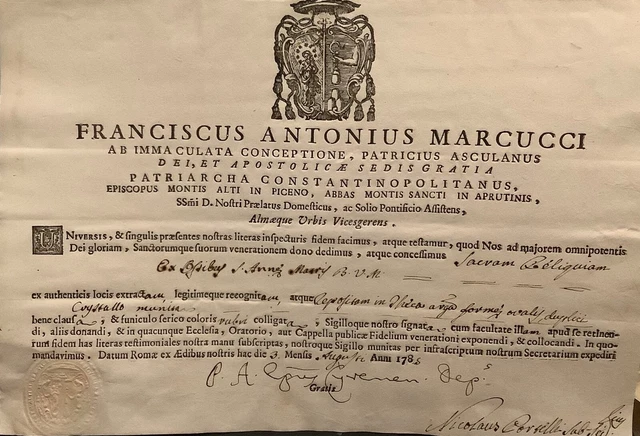 FRANCISCUS ANTONIUS MARCUCCI
AB IMMACULATA CONCEPTIONE, PATRICIUS ASCULANUS
DEI, ET APOSTOLICÆ SEDIS GRATIA
PATRIARCHA CONSTANTINOPOLITANUS,
EPISCOPUS MONTIS ALTI IN PICENO, ABBAS MONTIS SANCTI IN APRUTINIS,
SSmi D. Nostri Prælatus Domesticus, ac Solio Pontificio Assistens,
Almæque Urbis Vicesgerens.
UNIVERSIS, & singulis præsentes nostras literas inspecturis fidem facimus, atque testamur, quod Nos ad majorem omnipotentis
Dei gloriam, Sanctorumque suorum venerationem dono dedimus, atque concessimus Sacram Reliquiam
Ex Ossibus S. Annæ Matris B V M
ex authenticis locis extractam, legitimeque recognitam, atque repositam in Theca formæ ovalis duplici
Crystallo munita
bene clausa, & funiculo serico coloris rubri colligata, Sigilloque nostro signata cum facultate illam apud se retinen-
di, aliis donandi, & in quacunque Ecclesia, Oratorio, aut Cappella publicæ Fidelium venerationi exponendi, & collocandi. In quo-
rum fidem has literas testimoniales nostra manu subscriptas, nostroque Sigillo munitas per infrascriptum nostrum Secretarium expediri
mandavimus. Datum Romæ ex Ædibus nostris hac die 3. Mensis Augusti Anni 178
P. A. Dep.s
Gratis
Nicolaus